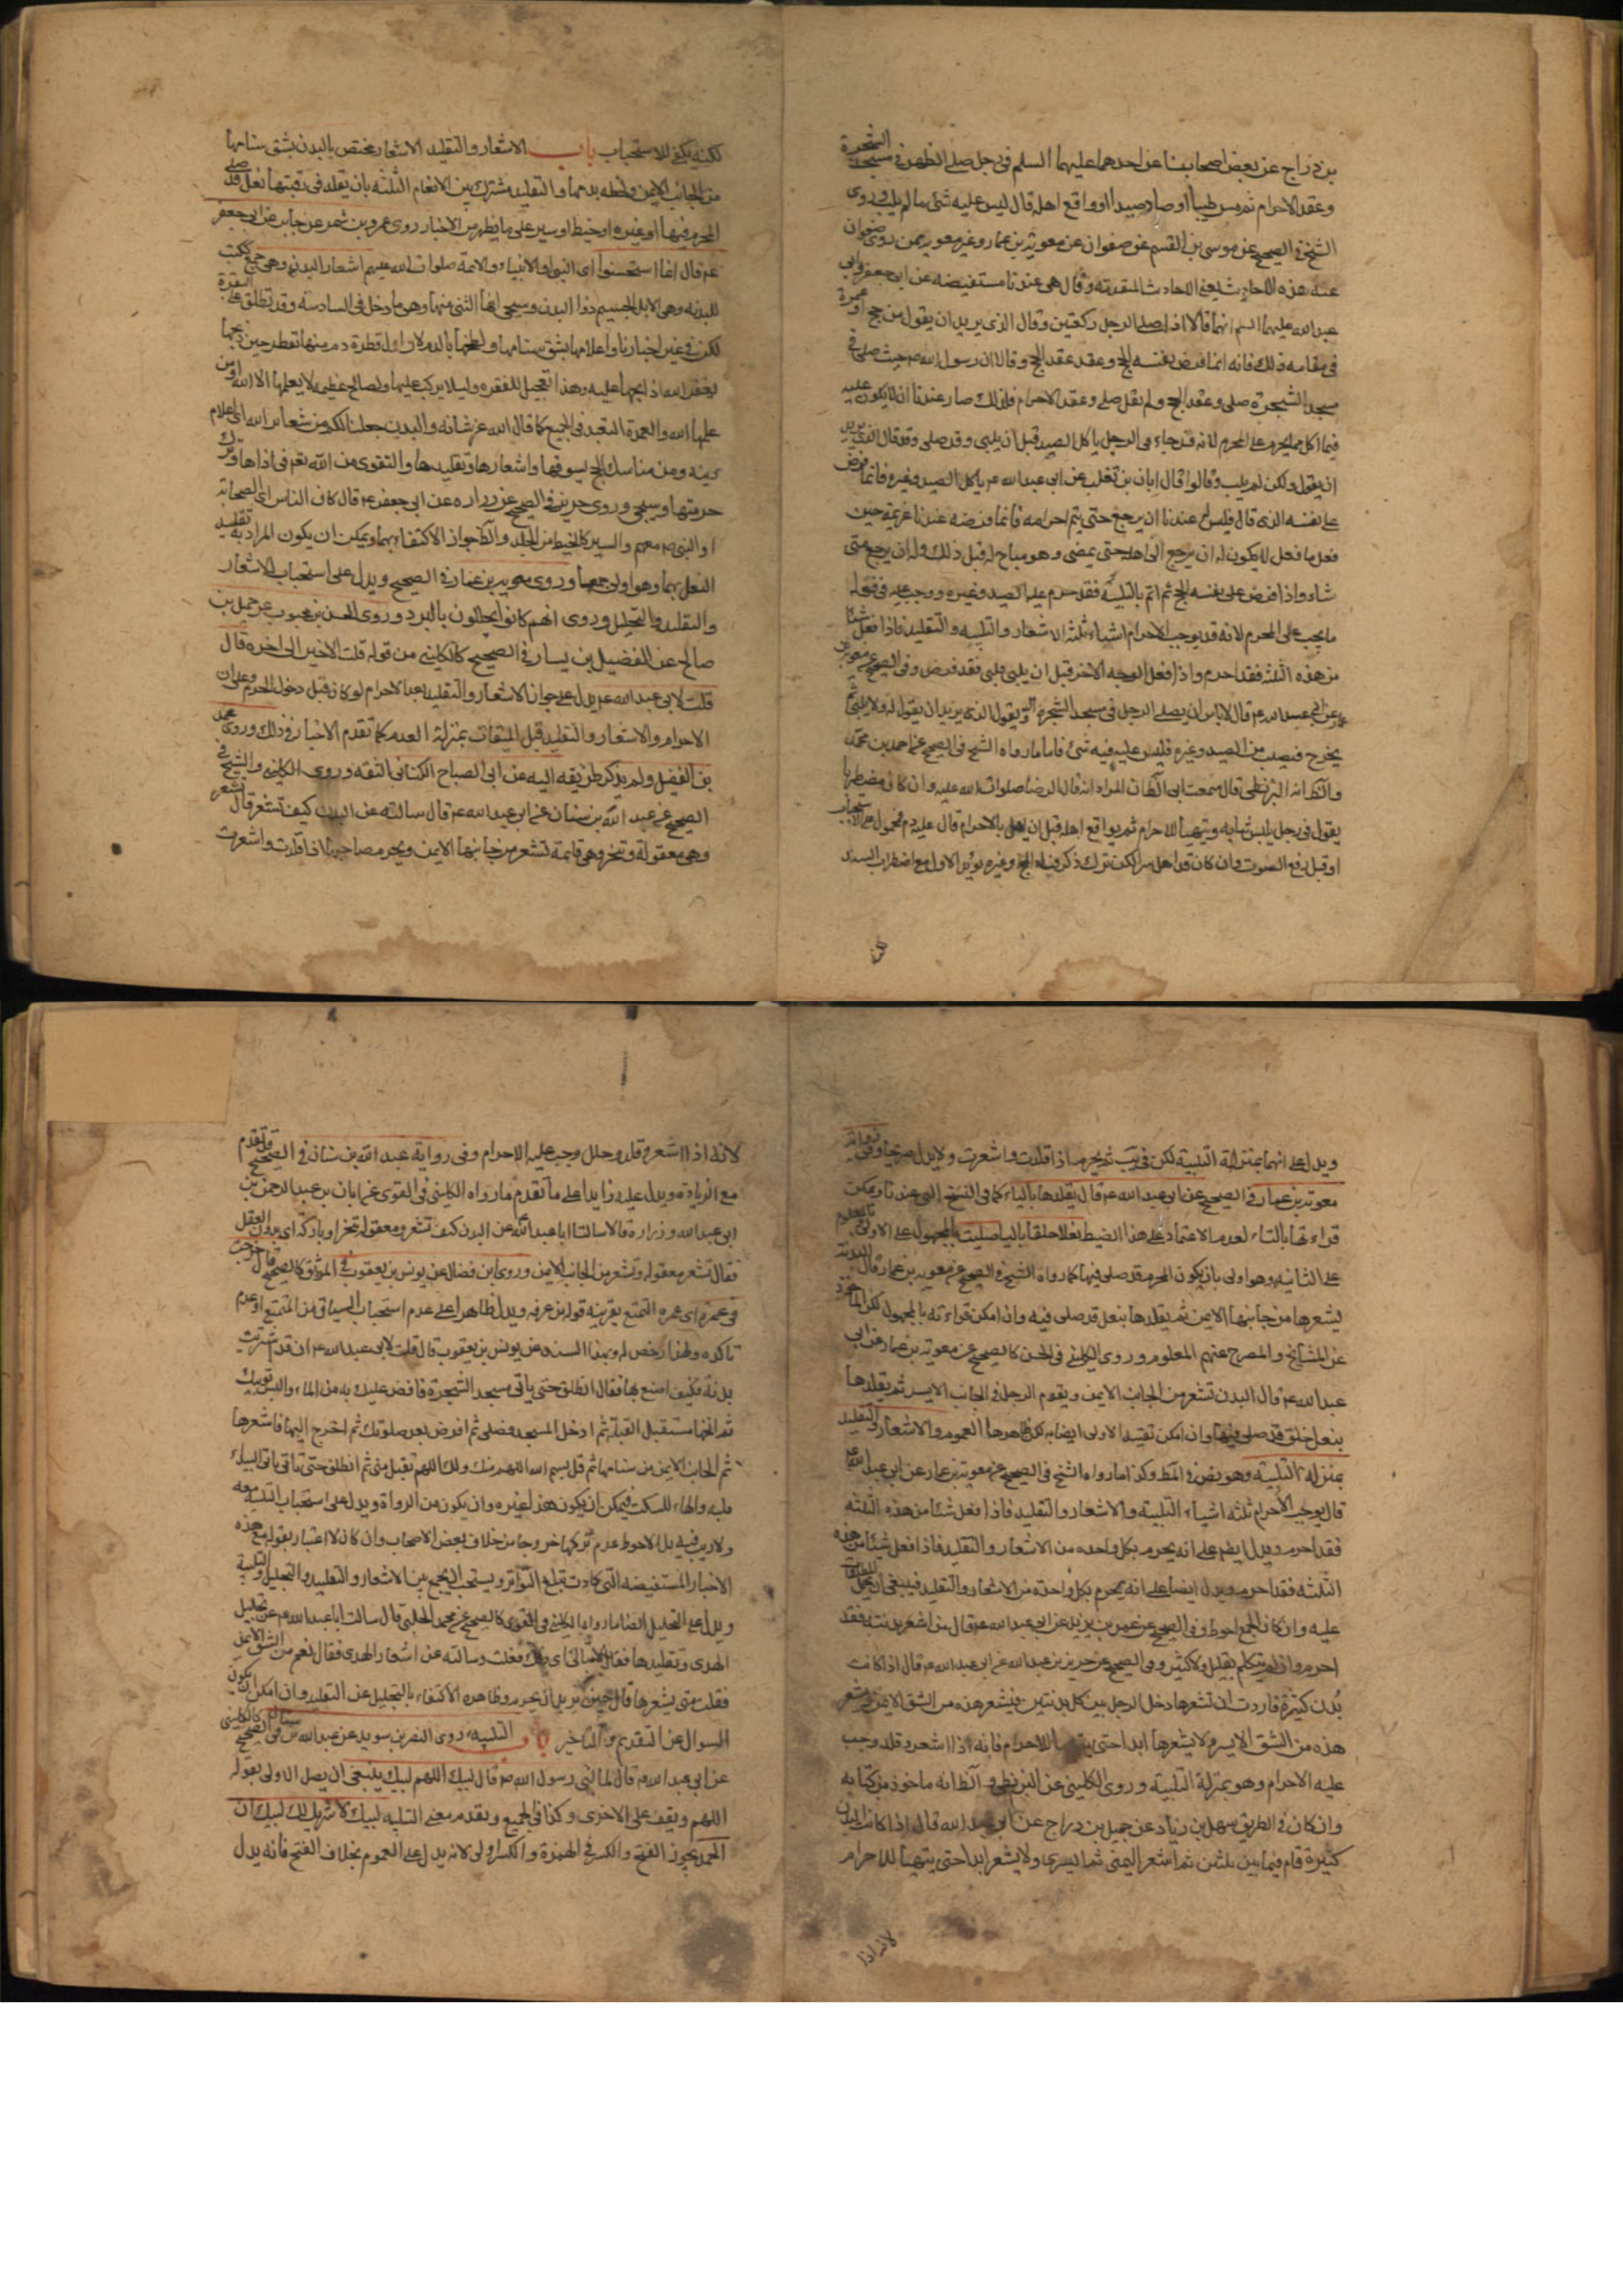 بن دراج عن بعض اصحابنا عن احدهما عليهما السلم في رجل صلى الظهر في مسجد الشجرة
وعقد الاحرام ثم مس طيبا او صاد صيدا او واقع اهله قال ليس عليه شئ ما لم يلب وروى
الشيخ في الصحيح عن موسى بن القسم عن صفوان عن معوية بن عمار وغير معوية ممن روى صفوان
عنه هذه الاحاديث يعني الاحاديث المتقدمة وقال هي عندنا مستفيضه عن ابي جعفر وابي
عبد الله عليهما السلم انهما قالا اذا صلى الرجل ركعتين وقال الذى يريد ان يقول من حج او عمرة
في مقامه ذلك فانه انما فرض على نفسه الحج وعقد عقد الحج وقالا ان رسول الله ص حيث صلى في
مسجد الشجرة صلى وعقد الحج ولم يقل صلى وعقد الاحرام فلذلك صار عندنا ان لا يكون عليه
فيما اكل مما يحرم على المحرم لانه قد جاء في الرجل ياكل الصيد قبل ان يلبي وقد صلى وقد قال الذى يريد
ان يقول ولكن لم يلب وقالوا قال ابان بن تغلب عن ابي عبد الله ع ياكل الصيد وغيره فانما فرض
على نفسه الذى قال فليس له عندنا ان يرجع حتى يتم احرامه فانما فرضه عندنا عزيمة حين
فعل ما فعل لا يكون له ان يرجع الى اهله حتى يمضى وهو مباح له قبل ذلك وله ان يرجع متى
شاء واذا فرض على نفسه الحج ثم اتم بالتلبية فقد حرم عليه الصيد وغيره ووجب عليه في فعله
ما يجب على المحرم لانه قد يوجب الاحرام اشياء ثلثة الاشعار والتلبيه والتقليد فاذا فعل شيئا
من هذه الثلثة فقد احرم واذا فعل الوجه الاخر قبل ان يلبي فلبى فقد فرض وفي الصحيح عن معوية بن
عمار عن ابي عبد الله ع قال لا باس ان يصلى الرجل في مسجد الشجرة ويقول الذى يريد ان يقوله ولا يلبي ثم
يخرج فيصيب من الصيد وغيره فليس عليه فيه شئ فاما ما رواه الشيخ في الصحيح عن احمد بن محمد
والظ انه البزنطي قال سمعت ابي الظان المراد انه قال الرضا صلوات الله عليه وان كان مضطربا
يقول في رجل يلبس ثيابه ويتهيأ للاحرام ثم يواقع اهله قبل ان يهل بالاحرام قال عليه دم فمحمول على الاستحباب
او قبل رفع الصوت وان كان قد اهل سرا لكن ترك ذكر وغيره يؤيد الاول مع اضطراب السند
لكنه يكفي للاستحباب باب الاشعار والتقليد الاشعار مختص بالبدن بشق سنامها
من الجانب الايمن ولطخه بدمها والتقليد مشترك بين الانعام الثلثة بان يقلد في رقبتها نعل قد صلى
المحرم فيها او غيره او خيط او سير على ما يظهر من الاخبار روى عمرو بن شمر عن جابر عن ابي جعفر
ع م قال انما استحسنوا اى النبي او الانبياء والائمة صلوات الله عليهم اشعار البدن وهي جمع ككتب
للبدنه وهي الابل الجسيم ذوا البدن وسيجي انها الثني منها وهو ما دخل في السادسه وقد تطلق على البقرة
لكن في غير اخبارنا واعلامها بشق سنامها ولطخها بالدم لان اول قطرة دم منها تقطر حين نحرها
يغفر الله اذ ايجها عليه وهذا تعجيل للمغفره وليلا يركب عليها ولمصالح عظيمه لا يعلمها الا الله او من
علمها الله والعمدة التعبد في الجميع كما قال الله عز شانه والبدن جعلناها لكم من شعاير الله اى اعلام
دينه ومن مناسك الحج ليسوقها واشعارها وتقليدها والتقوى من الله تعم في اذاها وترك
حرمتها وسيجي وروى حريز في الصحيح عن زراره عن ابي جعفر ع قال كان الناس اى الصحابة
او النبي ص معهم والسير كالخيط من الجلد والظ جواز الاكتفاء بهما ويمكن ان يكون المراد به تقليد
النعل بهما وهو اولى جمعا وروى معوية بن عمار في الصحيح ويدل على استحباب الاشعار
والتقليد والتجليل وروى انهم كانوا يجللون بالبرد وروى الحسن بن محبوب عن جميل بن
صالح عن الفضيل بن يسار في الصحيح كالكليني من قوله قلت الاخير الى اخره قال
قلت لابي عبد الله ع م يدل على جواز الاشعار والتقليد بعد الاحرام لو كان قبل دخول الحرم وعلى ان
الاحرام والاشعار والتقليد قبل الميقات بمنزلة العدم كما تقدم الاخبار في ذلك وروى محمد
بن الفضيل ولم يذكر طريقه اليه عن ابي الصباح الكناني الثقه وروى الكليني والشيخ في
الصحيح عن عبد الله بن سنان عن ابي عبد الله ع م قال سالته عن البدن كيف تشعر قال تشعر
وهي معقولة وتنحر وهي قايمة تشعر من جانبها الايمن ويحرم صاحبها اذا قلدت واشعرت
ويدل على انهما بمنزلة التلبية لكن في ثيب ثم يحرم اذا قلدت واشعرت ولا يدل صريحا وفي رواية
معوية بن عمار في الصحيح عن ابي عبد الله ع م قال يقلدها بالياء كما في النسخ التي عندنا ويمكن
قراءتها بالتاء لعدم الاعتماد على هذا الضبط نعلا خلقا بالياء صليت بالمجهول على الاولى بالمعلوم
على الثانيه وهو اولى بان يكون المحرم قد صلى فيها كما رواه الشيخ في الصحيح عن معوية بن عمار قال البدنة
يشعرها من جانبها الايمن ثم يقلدها بنعل قد صلى فيه وان امكن قراءته بالمجهول لكن المأخوذ
عن المشايخ والمصرح عنهم المعلوم وروى الكليني في الحسن كالصحيح عن معوية بن عمار عن ابي
عبد الله ع م قال البدن تشعر من الجانب الايمن ويقوم الرجل في الجانب الايسر ثم يقلدها
بنعل خلق قد صلى فيها وان امكن تقييد الاولى ايضا به لكن ظاهرها العموم والاشعار والتقليد
بمنزلة التلبية وهو نص في المط وكذا ما رواه الشيخ في الصحيح عن معوية بن عمار عن ابي عبد الله ع
قال يوجب الاحرام ثلثة اشياء التلبية والاشعار والتقليد فاذا فعل شيئا من هذه الثلثة
فقد احرم ويدل ايضا على انه يحرم بكل واحده من الاشعار والتقليد فاذا فعل شيئا من هذه
الثلثه فقد احرم ويدل ايضا على انه يحرم بكل واحدة من الاشعار والتقليد فينبغي ان يحمل
عليه وان كان الجمع احوط وفي الصحيح عن عمر بن يزيد عن ابي عبد الله ع م قال من اشعر بدنته فقد
احرم وان لم يتكلم بقليل ولا كثير وفي الصحيح عن حريز بن عبد الله عن ابي عبد الله ع م قال اذا كانت
بدن كثيرة فاردت ان تشعرها دخل الرجل بين كل بدنتين فيشعر هذه من الشق الايمن ويشعر
هذه من الشق الايسر ولا يشعرها ابدا حتى يتهيأ للاحرام فانه اذا اشعر وقلد وجب
عليه الاحرام وهو بمنزلة التلبية وروى الكليني عن البزنطي والظ انه ماخوذ من كتابه
وان كان في الطريق سهل بن زياد عن جميل بن دراج عن ابي عبد الله قال اذا كانت البدن
كثيرة قام فيما بين ثنتين ثم اشعر اليمنى ثم اليسرى ولا يشعر ابدا حتى يتهيأ للاحرام
لانه اذا
لانه اذا اشعر وقلد وجلل وجب عليه الاحرام وفي رواية عبد الله بن سنان في الصحيح وقد تقدم
مع الزيادة ويدل عليه زايدا على ما تقدم ما رواه الكليني في القوى عن ابان بن عبد الرحمن بن
ابي عبد الله وزرارة قالا سالنا ابا عبد الله عن البدن كيف تشعر ومعقوله تنحر او باركة اى بدون العقل
فقال تشعر معقوله وتشعر من الجانب الايمن وروى ابن فضال عن يونس بن يعقوب في الموثق كالصحيح قال خرجت
في عمرة اى عمره التمتع بقرينه قوله بن عرفه ويدل ظاهرا على عدم استحباب السياق من المتمتع او عدم
تاكده ولهذا رخص له وبهذا السند عن يونس بن يعقوب قال قلت لابي عبد الله ع م اني قد اشتريت
بدنة فكيف اصنع بها فقال انطلق حتى ياتي مسجد الشجرة فافض عليك به من الماء والبس ثوبيك
ثم انخها مستقبل القبلة ثم ادخل المسجد فصلى ثم افرض بعد صلوتك ثم اخرج اليها فاشعرها
ثم الجانب الايمن من سنامها ثم قل بسم الله اللهم منك ولك اللهم تقبل مني ثم انطلق حتى تاتي البيداء
فلبه والهاء للسكت فيمكن ان يكون هذا غيره وان يكون من الرواة ويدل على استحباب التلبيه معه
ولا ريب فيه بل الاحوط عدم تركها خروجا من خلاف بعض الاصحاب وان كان لا اعتبار بقوله مع هذه
الاخبار المستفيضه التي كادت تبلغ التواتر ويستحب ان يجمع بين الاشعار والتقليد والتجليل والتلبية
ويدل على التجليل ايضا ما رواه الكليني في القوى كالصحيح عن محمد الحلبي قال سالت ابا عبد الله ع م عن تجليل
الهدى وتقليدها فقال لا تبالي اى ذلك فعلت وسالته عن اشعار الهدى فقال نعم من الشق الايمن
فقلت متى يشعرها قال حين يريد ان يحرم وظاهره الاكتفاء بالتجليل عن التقليد وان امكن ان يكون
السوال عن التقديم والتاخير باب التلبية روى النضر بن سويد عن عبد الله بن سنان في الصحيح كالكليني
عن ابي عبد الله ع م قال لما لبى رسول الله ص م قال لبيك اللهم لبيك ينبغي ان يصل الاولى بقوله
اللهم ويقف على الاخرى وكذا في الجميع وتقدم معنى التلبيه لبيك لا شريك لك لبيك ان
الحمد يجوز الفتح والكسر في الهمزة والكسر اولى لانه يدل على العموم بخلاف الفتح فانه يدل